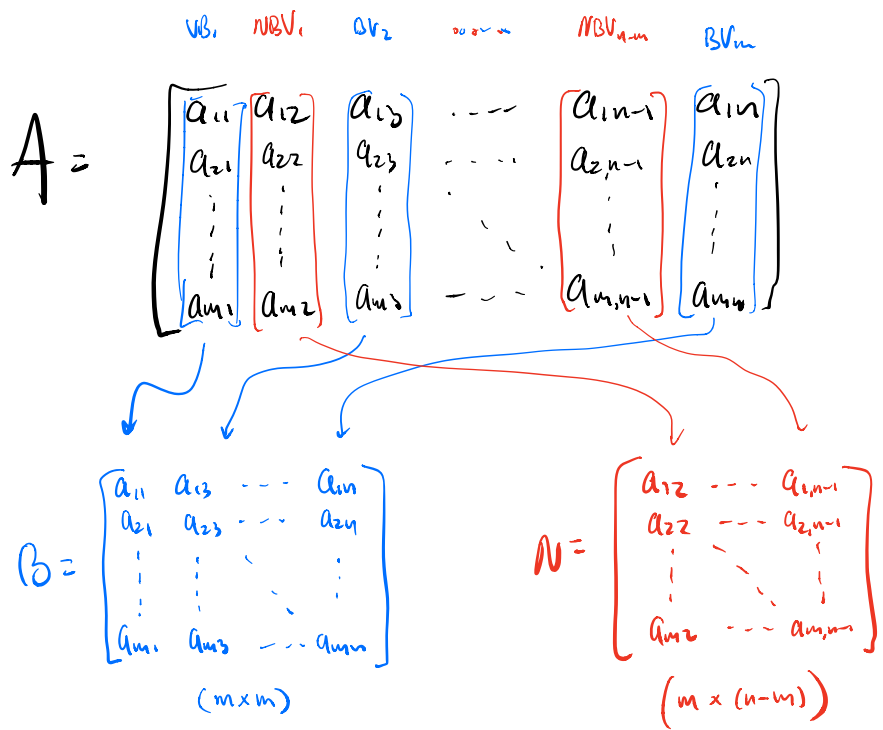 VB₁ NBV₁ BV₂ ...... NBVₙ₋ₘ BVₘ
a₁₁ a₁₂ a₁₃ ---- a₁ₙ₋₁ a₁ₙ
A = a₂₁ a₂₂ a₂₃ ---- a₂,ₙ₋₁ a₂ₙ
aₘ₁ aₘ₂ aₘ₃ --- aₘ,ₙ₋₁ aₘₙ
a₁₁ a₁₃ ---- a₁ₙ
a₂₁ a₂₃ ---- a₂ₙ
B =
aₘ₁ aₘ₃ ---- aₘₙ
(m×m)
a₁₂ --- a₁,ₙ₋₁
a₂₂ --- a₂,ₙ₋₁
N =
aₘ₂ --- aₘ,ₙ₋₁
(m × (n-m))